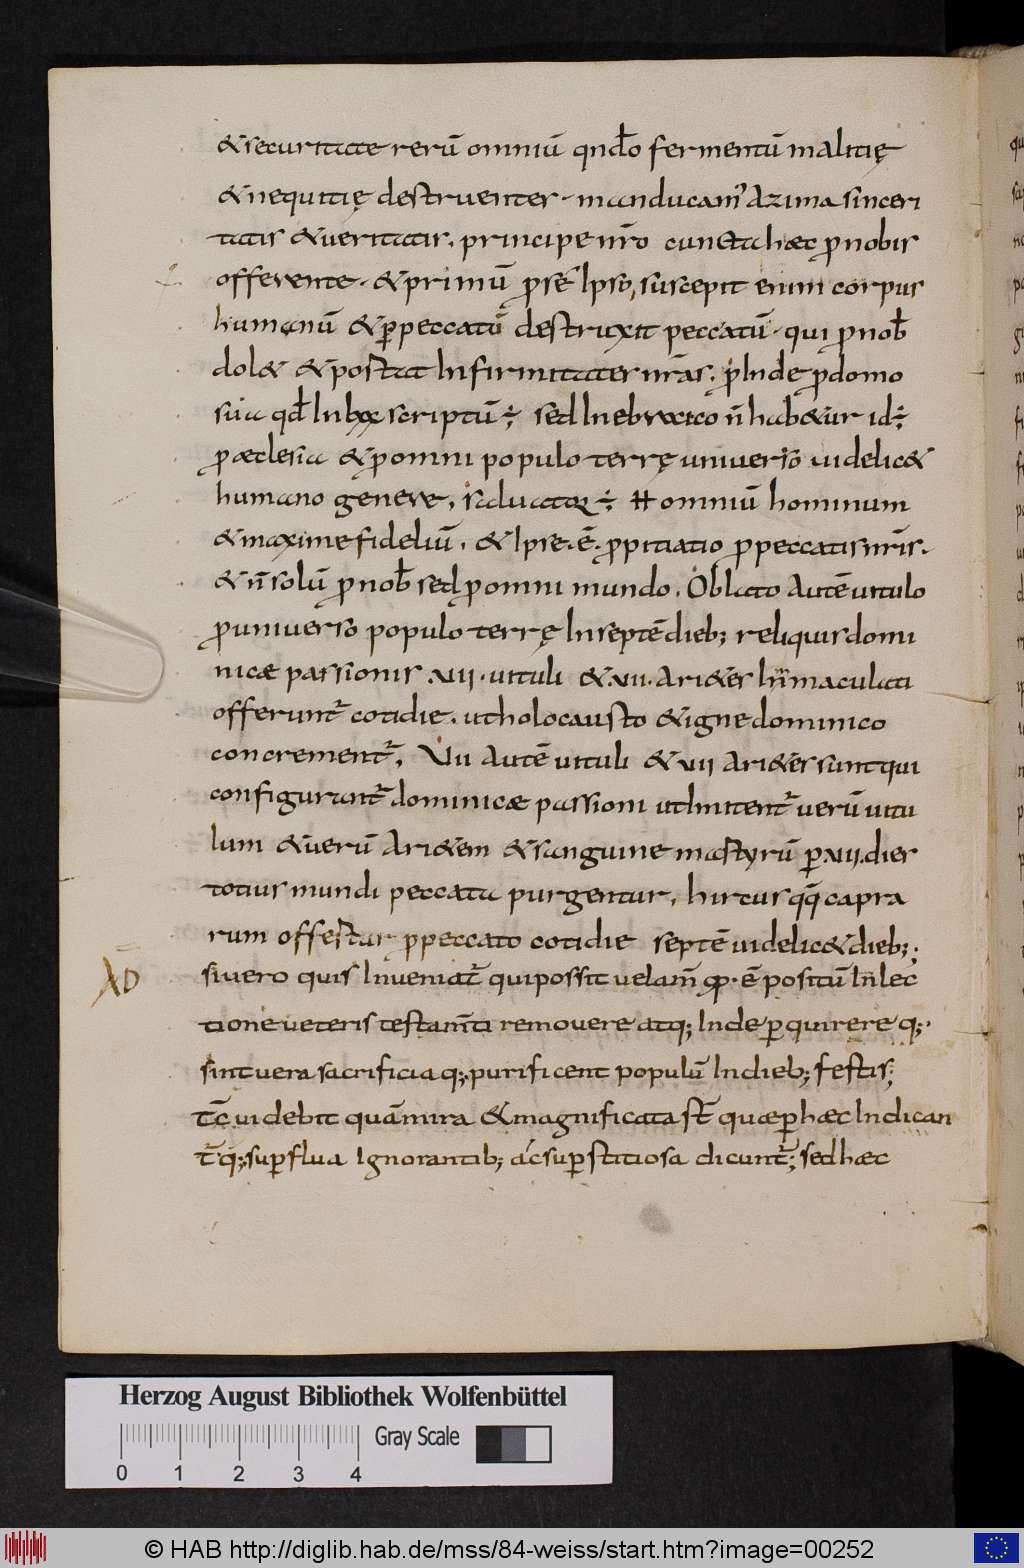 &securitate rerū omniū qnđo fermentū malitię
&nequitię destruenter · manducam̄ azima sinceri
tatis &ueritatis. principe nr̄o cuncta hæc ꝓnobis
offerente · &primū ꝓse ipso, suscepit enim corpus
humanū &ꝑpeccatū destruxit peccatū · qui ꝓnob̄
dol& &portat Infirmitates nr̄as. ꝓInde ꝓdomo
sua qđ In lxx scriptū ÷, sed In ebraico n̄ hab&ur id ÷
ꝓ æclesia &ꝓomni populo terrę uniuerso uidelic&
humano genere, saluator ÷ omniū hominum
&maxime fideliū. &Ipse. ē. ꝓpitiatio ꝓpeccatis nr̄is.
&n̄ solū ꝓnob̄ sed ꝓomni mundo. Oblato autē uitulo
ꝓuniuerso populo terrę In septē dieb; reliquis domi
nicæ passionis .uii. uituli &.uii. ari&es Inmaculati
offerunt̄ cotidie. ut holocausto &igne dominico
concrement̄, Uii autē uituli &uii ari&es sunt qui
configurant̄ dominicæ passioni ut Imitent̄ uerū uitu
lum &uerū ari&em &sanguine martyrū ꝑ.uii.dies
totius mundi peccata purgentur, hircus qq̄ capra
rum offertur ꝓpeccato cotidie septē uidelic& dieb;.
XD
si uero quis Inueniat̄ qui possit uelam̄ qđ · ē positū In lec
tione ueteris testam̄ti remouere atq; Inde ꝑquirere q;·
sint uera sacrificia q; purificent populū In dieb; festis;
tc̄ uidebit quā mira &magnificata st̄ quæ ꝑ hæc Indican
t̄ q̄; suꝑflua Ignorantib; ac suꝑstitiosa dicunt̄; sed hæc
Herzog August Bibliothek Wolfenbüttel
Gray Scale
0 1 2 3 4
© HAB http://diglib.hab.de/mss/84-weiss/start.htm?image=00252